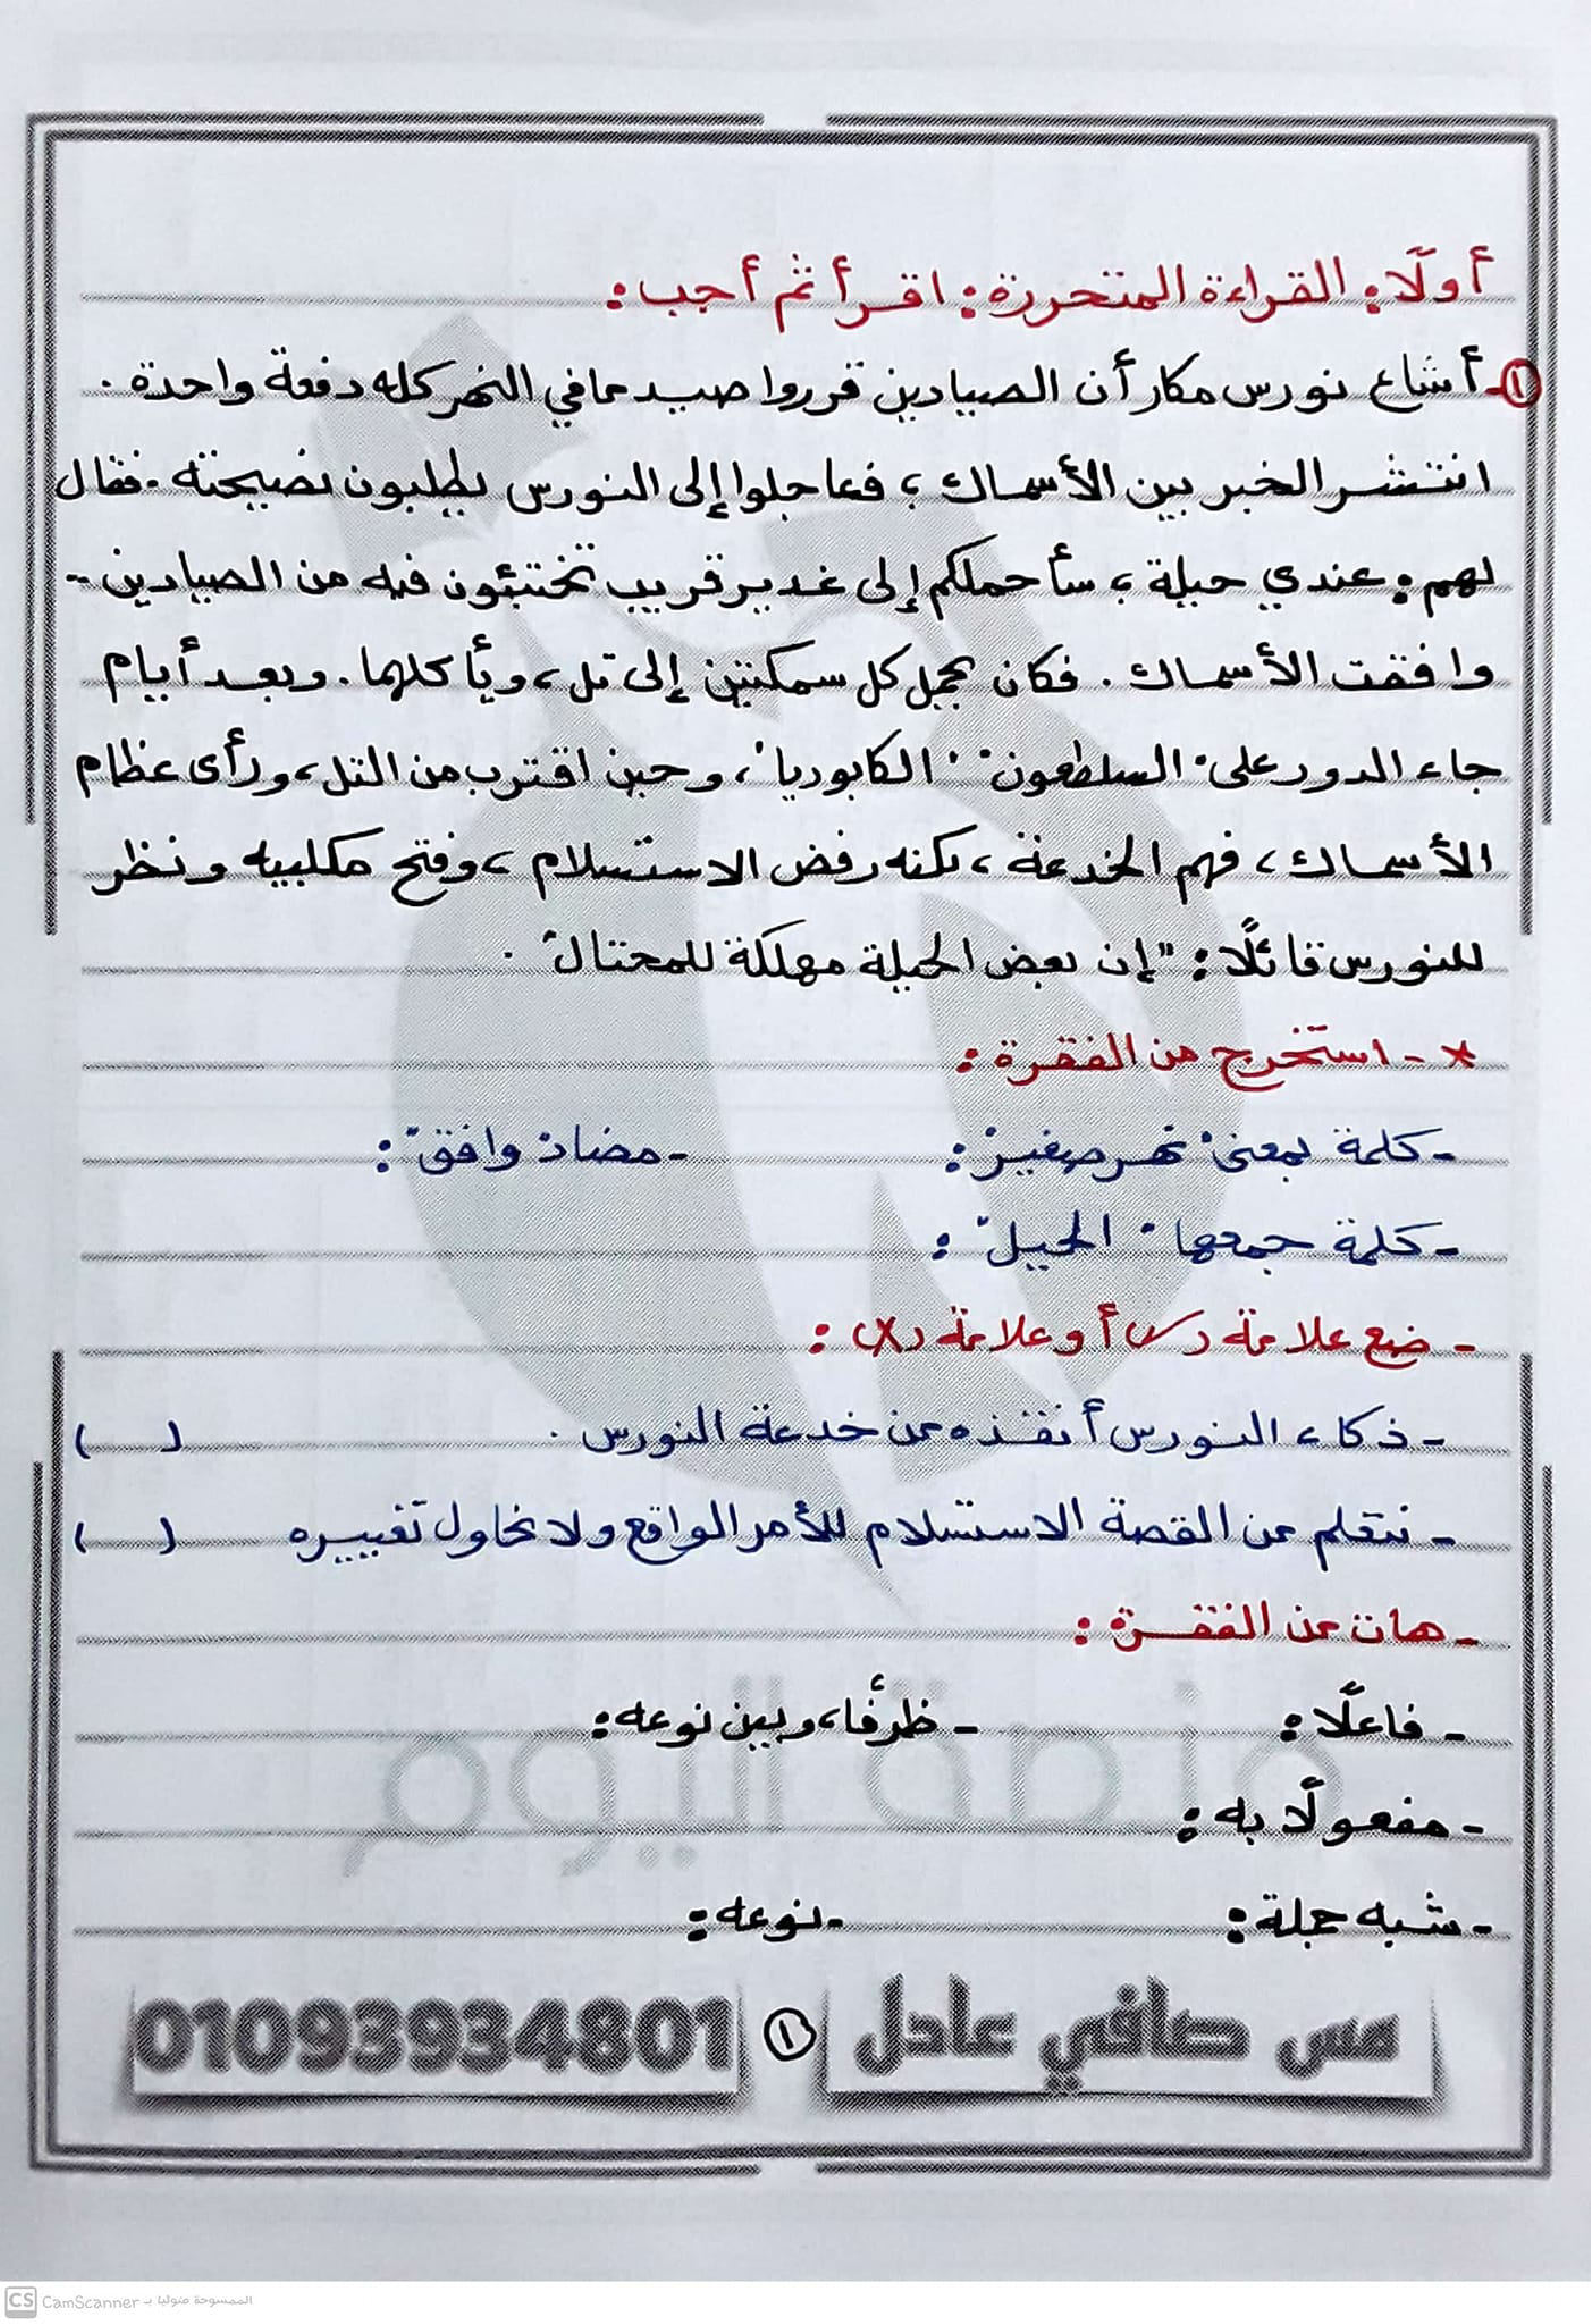 أولًا: القراءة المتحررة: اقرأ ثم أجب:
١- أشاع نورس مكار أن الصيادين قرروا صيد ما في النهر كله دفعة واحدة.
انتشر الخبر بين الأسماك، فعاجلوا إلى النورس يطلبون نصيحته. فقال
لهم: عندي حيلة، سأحملكم إلى غدير قريب تختبئون فيه من الصيادين -
وافقت الأسماك. فكان يحمل كل سمكتين إلى تل، ويأكلهما. وبعد أيام
جاء الدور على "السلطعون" "الكابوريا"، وحين اقترب من التل، ورأى عظام
الأسماك، فهم الخدعة، لكنه رفض الاستسلام، وفتح مكلبيه ونظر
للنورس قائلًا: "إن بعض الحيلة مهلكة للمحتال".
* - استخرج من الفقرة:
- كلمة بمعنى "نهر صغير": - مضاد "وافق":
- كلمة جمعها "الحيل":
- ضع علامة (✓) أو علامة (X):
- ذكاء النورس أنقذه من خدعة النورس. ( )
- نتعلم من القصة الاستسلام للأمر الواقع ولا نحاول تغييره ( )
- هات من الفقرة:
- فاعلًا: - ظرفًا، وبين نوعه:
- مفعولًا به:
- شبه جملة: - نوعه:
منصة اليوم
مس صافي عادل ١ 01093934801
CS CamScanner الممسوحة ضوئيا بـ